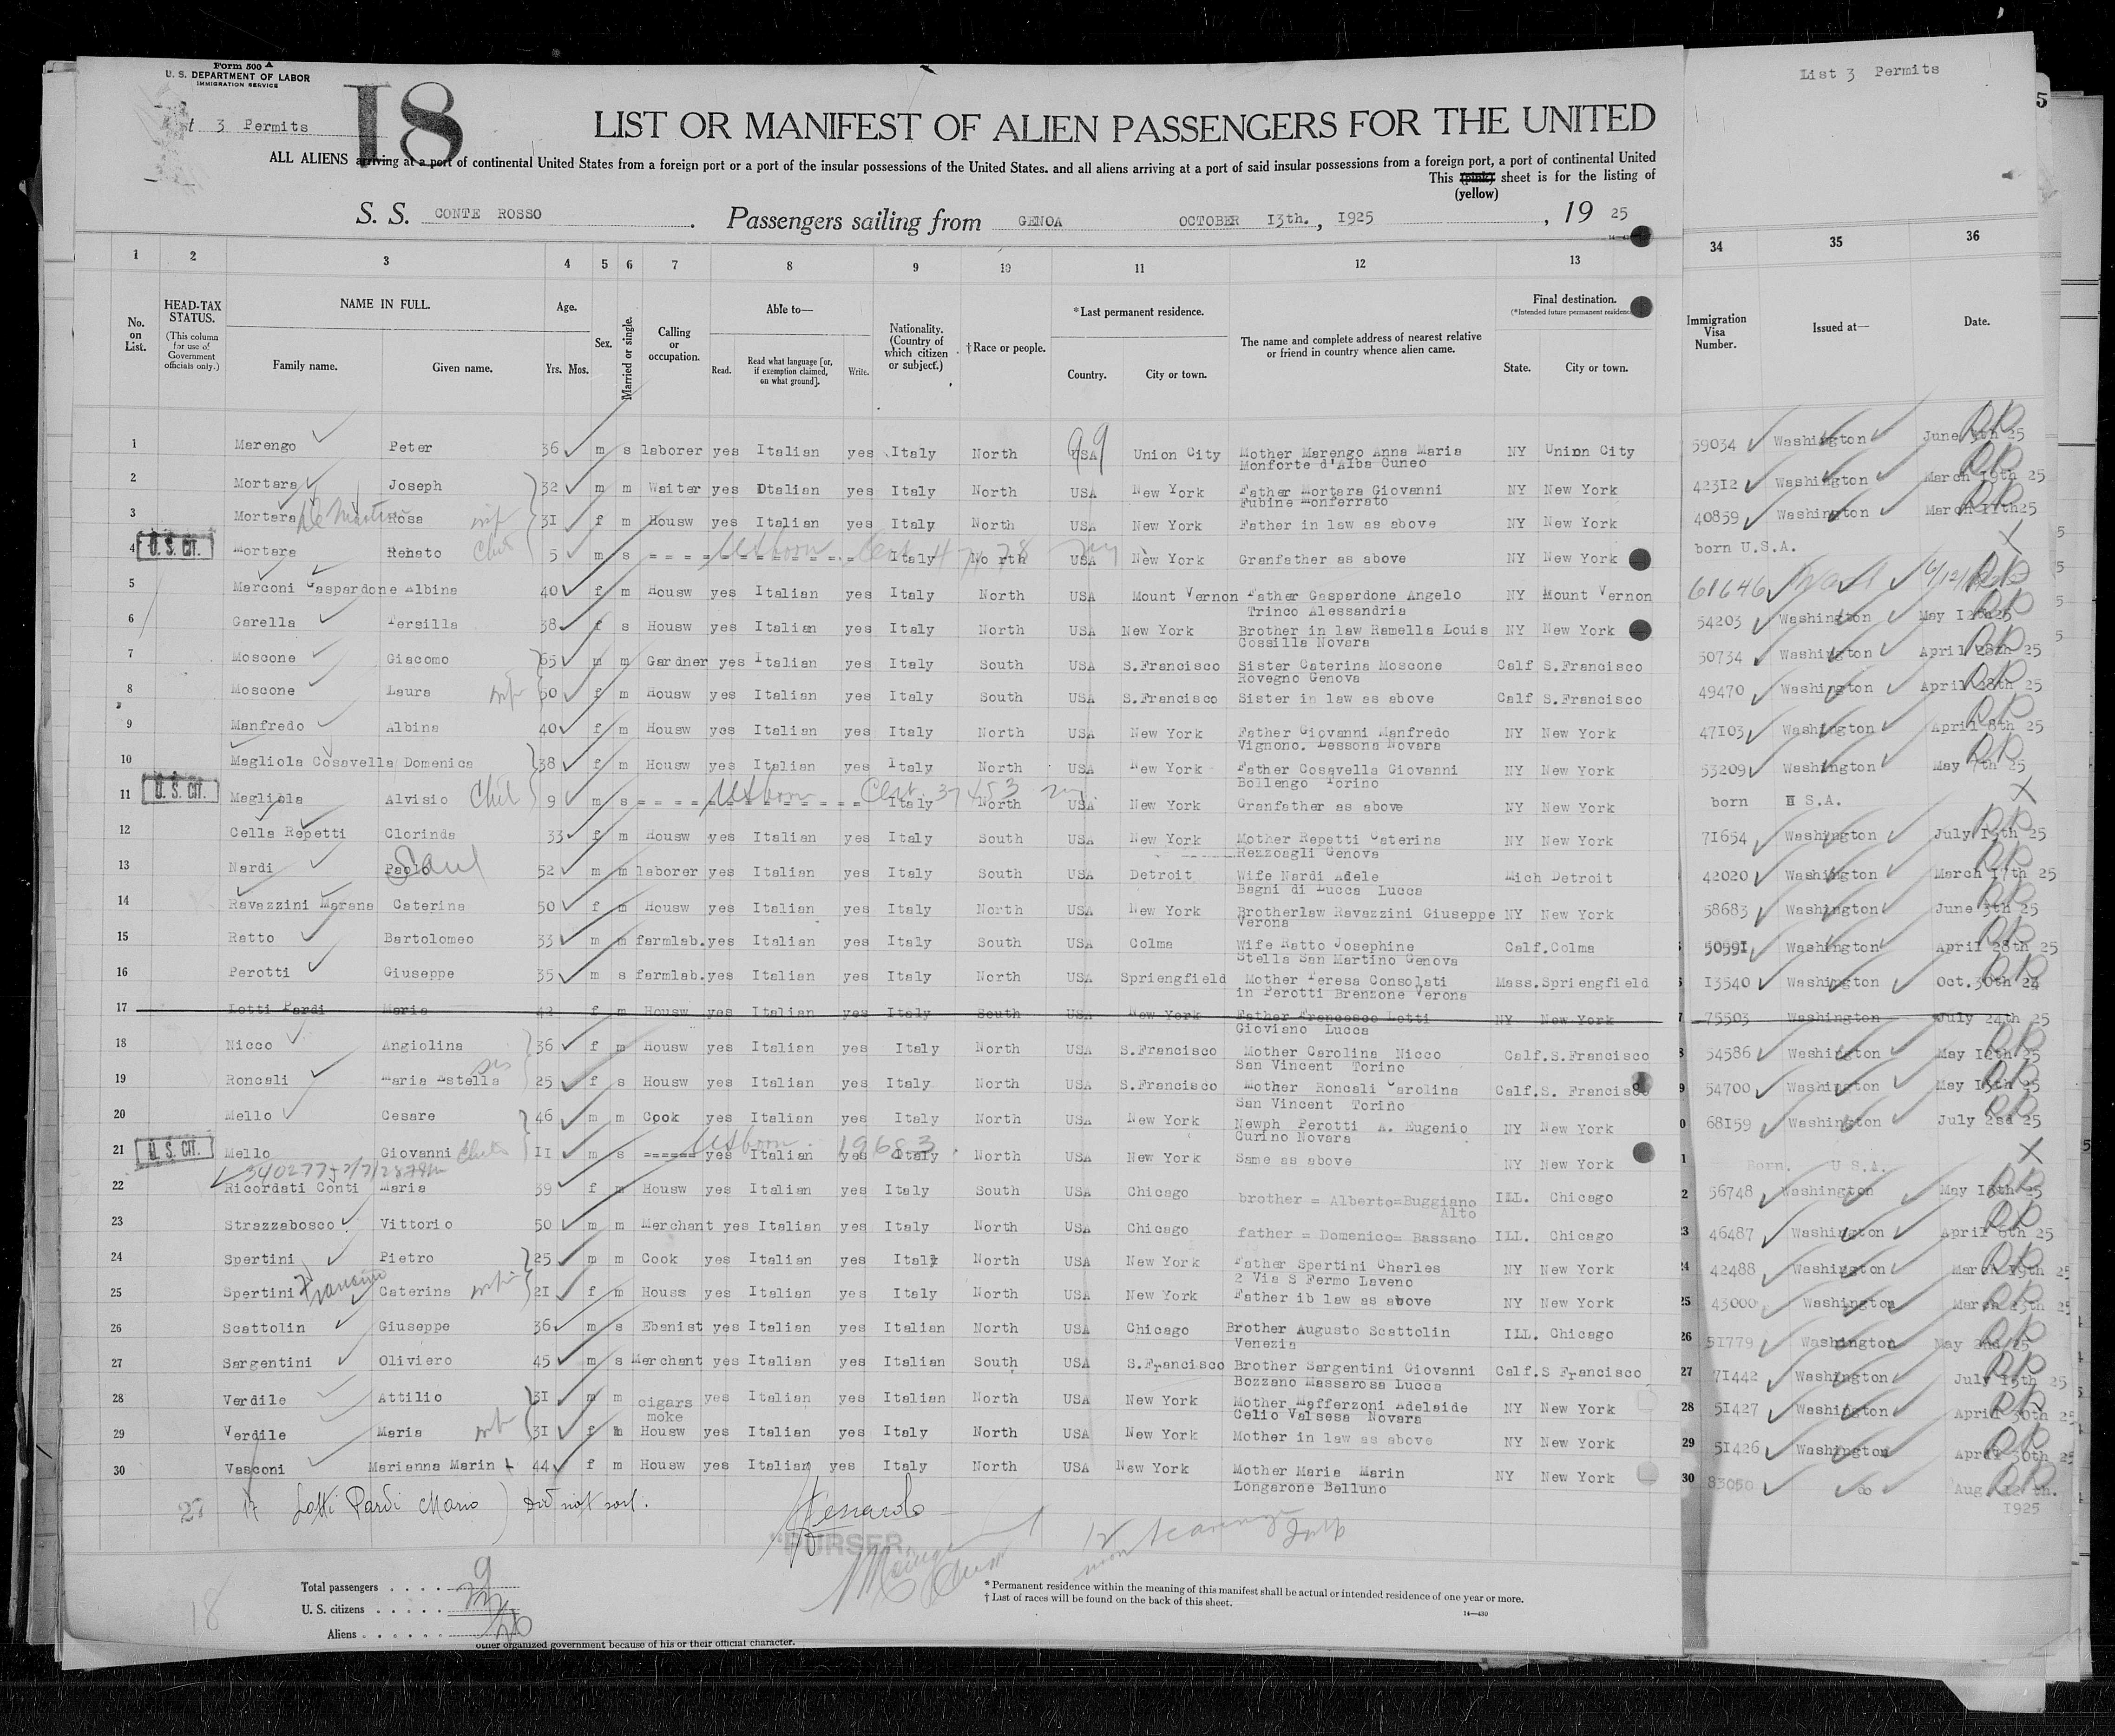 Form 500 A
U. S. DEPARTMENT OF LABOR
IMMIGRATION SERVICE
18
3 Permits
List 3 Permits
LIST OR MANIFEST OF ALIEN PASSENGERS FOR THE UNITED
ALL ALIENS arriving at a port of continental United States from a foreign port or a port of the insular possessions of the United States. and all aliens arriving at a port of said insular possessions from a foreign port, a port of continental United
This (pink) sheet is for the listing of
(yellow)
S. S. CONTE ROSSO. Passengers sailing from GENOA OCTOBER 13th., 1925, 19 25
1 2 3 4 5 6 7 8 9 10 11 12 13 34 35 36
No. on List. HEAD-TAX STATUS. (This column for use of Government officials only.) NAME IN FULL. Family name. Given name. Age. Yrs. Mos. Sex. Married or single. Calling or occupation. Able to— Read. Read what language [or, if exemption claimed, on what ground]. Write. Nationality. (Country of which citizen or subject.) †Race or people. *Last permanent residence. Country. City or town. The name and complete address of nearest relative or friend in country whence alien came. Final destination. (*Intended future permanent residence) State. City or town. Immigration Visa Number. Issued at— Date.
1 Marengo Peter 36 m s laborer yes Italian yes Italy North USA Union City Mother Marengo Anna Maria NY Union City 59034 Washington June 25
Monforte d'Alba Cuneo
2 Mortara Joseph 32 m m Waiter yes Dtalian yes Italy North USA New York Father Mortara Giovanni NY New York 42312 Washington March 19th 25
Fubine Monferrato
3 Mortara Rosa 31 f m Housw yes Italian yes Italy North USA New York Father in law as above NY New York 40859 Washington March 11th 25
4 U. S. CIT. Mortara Renato 5 m s US born Italy North USA New York Granfather as above NY New York born U.S.A.
5 Marconi Gaspardone Albina 40 f m Housw yes Italian yes Italy North USA Mount Vernon Father Gaspardone Angelo NY Mount Vernon 61646
Trinco Alessandria
6 Garella Persilla 38 f s Housw yes Italian yes Italy North USA New York Brother in law Ramella Louis NY New York 54203 Washington May 12th 25
Cossilla Novara
7 Moscone Giacomo 65 m m Gardner yes Italian yes Italy South USA S.Francisco Sister Caterina Moscone Calf S.Francisco 50734 Washington April 28th 25
Rovegno Genova
8 Moscone Laura 50 f m Housw yes Italian yes Italy South USA S.Francisco Sister in law as above Calf S.Francisco 49470 Washington April 28th 25
9 Manfredo Albina 40 f m Housw yes Italian yes Italy North USA New York Father Giovanni Manfredo NY New York 47103 Washington April 8th 25
Vignono. Lessona Novara
10 Magliola Cosavella Domenica 38 f m Housw yes Italian yes Italy North USA New York Father Cosavella Giovanni NY New York 53209 Washington May 7th 25
Bollengo Torino
11 U. S. CIT. Magliola Alvisio 9 m s US born Cert. 37453 Italy North USA New York Granfather as above NY New York born U S.A.
12 Cella Repetti Clorinda 33 f m Housw yes Italian yes Italy South USA New York Mother Repetti Caterina NY New York 71654 Washington July 15th 25
Rezzoagli Genova
13 Nardi Paolo Paul 52 m m laborer yes Italian yes Italy South USA Detroit Wife Nardi Adele Mich Detroit 42020 Washington March 17th 25
Bagni di Lucca Lucca
14 Ravazzini Marana Caterina 50 f m Housw yes Italian yes Italy North USA New York Brotherlaw Ravazzini Giuseppe NY New York 58683 Washington June 3th 25
Verona
15 Ratto Bartolomeo 33 m m farmlab. yes Italian yes Italy South USA Colma Wife Ratto Josephine Calf. Colma 50591 Washington April 28th 25
Stella San Martino Genova
16 Perotti Giuseppe 35 m s farmlab. yes Italian yes Italy North USA Spriengfield Mother Teresa Consolati Mass. Spriengfield 13540 Washington Oct. 30th 24
in Perotti Brenzone Verona
17 Lotti Pardi Maria 42 f m Housw yes Italian yes Italy South USA New York Father Francesco Lotti NY New York 75503 Washington July 24th 25
Gioviano Lucca
18 Nicco Angiolina 36 f m Housw yes Italian yes Italy North USA S.Francisco Mother Carolina Nicco Calf. S.Francisco 54586 Washington May 25
San Vincent Torino
19 Roncali Maria Estella 25 f s Housw yes Italian yes Italy North USA S.Francisco Mother Roncali Carolina Calf. S. Francisco 54700 Washington May 15th 25
San Vincent Torino
20 Mello Cesare 46 m m Cook yes Italian yes Italy North USA New York Newph Perotti A. Eugenio NY New York 68159 Washington July 2sd 25
Curino Novara
21 U. S. CIT. Mello Giovanni 11 m s US born. 19683 yes Italian yes Italy North USA New York Same as above NY New York Born. U S.A.
22 Ricordati Conti Maria 39 f m Housw yes Italian yes Italy South USA Chicago brother = Alberto=Buggiano ILL. Chicago 56748 Washington May 25
Alto
23 Strazzabosco Vittorio 50 m m Merchant yes Italian yes Italy North USA Chicago father = Domenico= Bassano ILL. Chicago 46487 Washington April 6th 25
24 Spertini Pietro 25 m m Cook yes Italian yes Italy North USA New York Father Spertini Charles NY New York 42488 Washington March 19th 25
2 Via S Fermo Laveno
25 Spertini Caterina 21 f m Houss yes Italian yes Italy North USA New York Father ib law as above NY New York 43000 Washington March 23th 25
26 Scattolin Giuseppe 36 m s Ebanist yes Italian yes Italian North USA Chicago Brother Augusto Scattolin ILL. Chicago 51779 Washington May 2nd 25
Venezia
27 Sargentini Oliviero 45 m s Merchant yes Italian yes Italian South USA S.Francisco Brother Sargentini Giovanni Calf. S Francisco 71442 Washington July 15th 25
Bozzano Massarosa Lucca
28 Verdile Attilio 31 m m cigars yes Italian yes Italian North USA New York Mother Mafferzoni Adelaide NY New York 51427 Washington April 30th 25
moke Celio Valsesa Novara
29 Verdile Maria 31 f m Housw yes Italian yes Italy North USA New York Mother in law as above NY New York 51426 Washington April 30th 25
30 Vasconi Marianna Marin 44 f m Housw yes Italian yes Italy North USA New York Mother Maria Marin NY New York 83050 Aug 12 th.
Longarone Belluno 1925
27 17 Lotti Pardi Maria) Did not sail.
"PURSER
Total passengers
U. S. citizens
Aliens
18
* Permanent residence within the meaning of this manifest shall be actual or intended residence of one year or more.
† List of races will be found on the back of this sheet.
14—430
other organized government because of his or their official character.